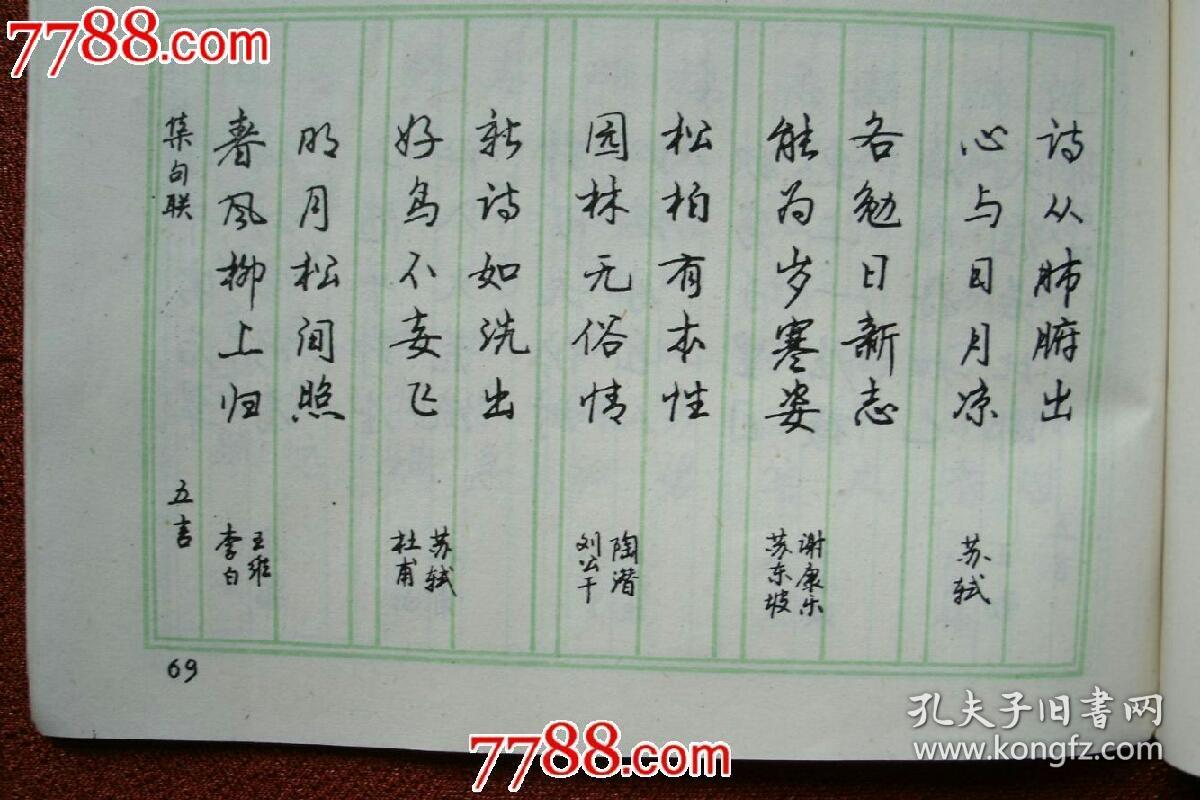 7788.com
诗从肺腑出
心与日月凉
苏轼
各勉日新志
能为岁寒姿
谢康乐
苏东坡
松柏有本性
园林无俗情
陶潜
刘公干
新诗如洗出
好鸟不妄飞
苏轼
杜甫
明月松间照
春风柳上归
王维
李白
集句联
五言
69
孔夫子旧书网
www.kongfz.com
7788.com